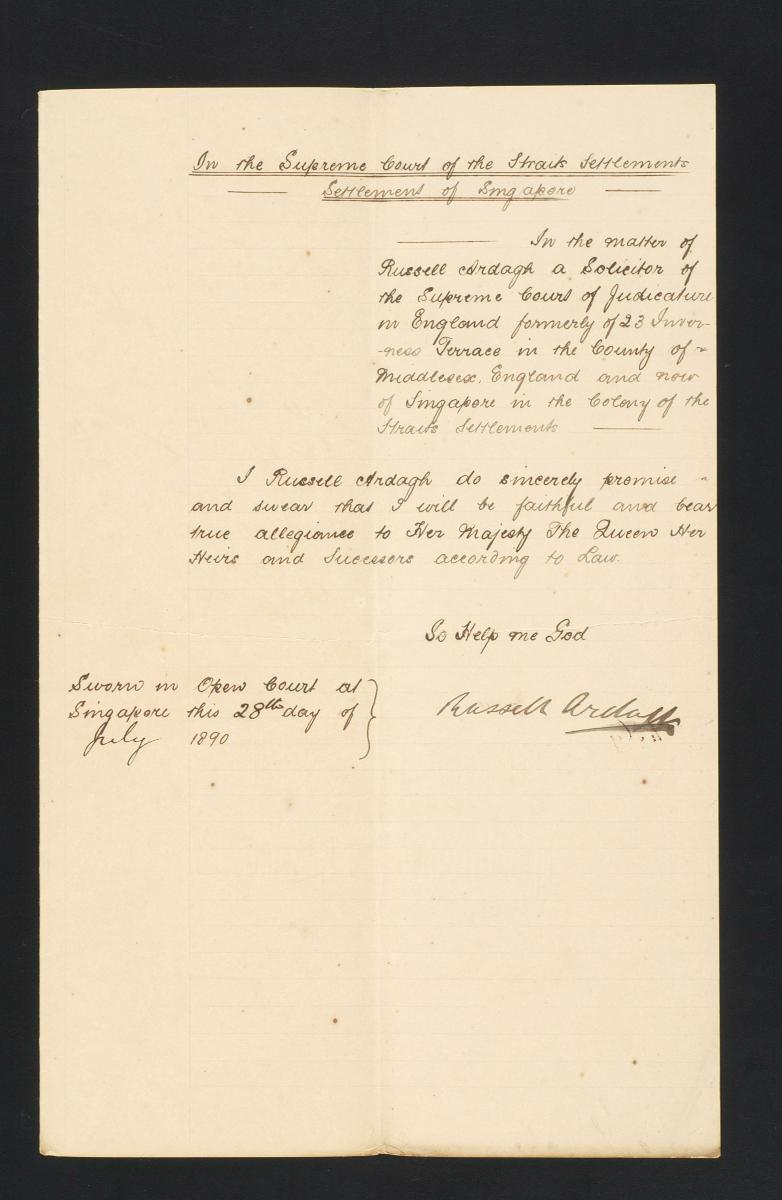 In the Supreme Court of the Straits Settlements
Settlement of Singapore
In the matter of
Russell Ardagh a Solicitor of
the Supreme Court of Judicature
in England formerly of 23 Inver-
-ness Terrace in the County of
Middlesex. England and now
of Singapore in the Colony of the
Straits Settlements
I Russell Ardagh do sincerely promise
and swear that I will be faithful and bear
true allegiance to Her Majesty The Queen Her
Heirs and Sucessors according to Law.
So Help me God
Sworn in Open Court at
Singapore this 28th day of
July 1890
Russell Ardagh